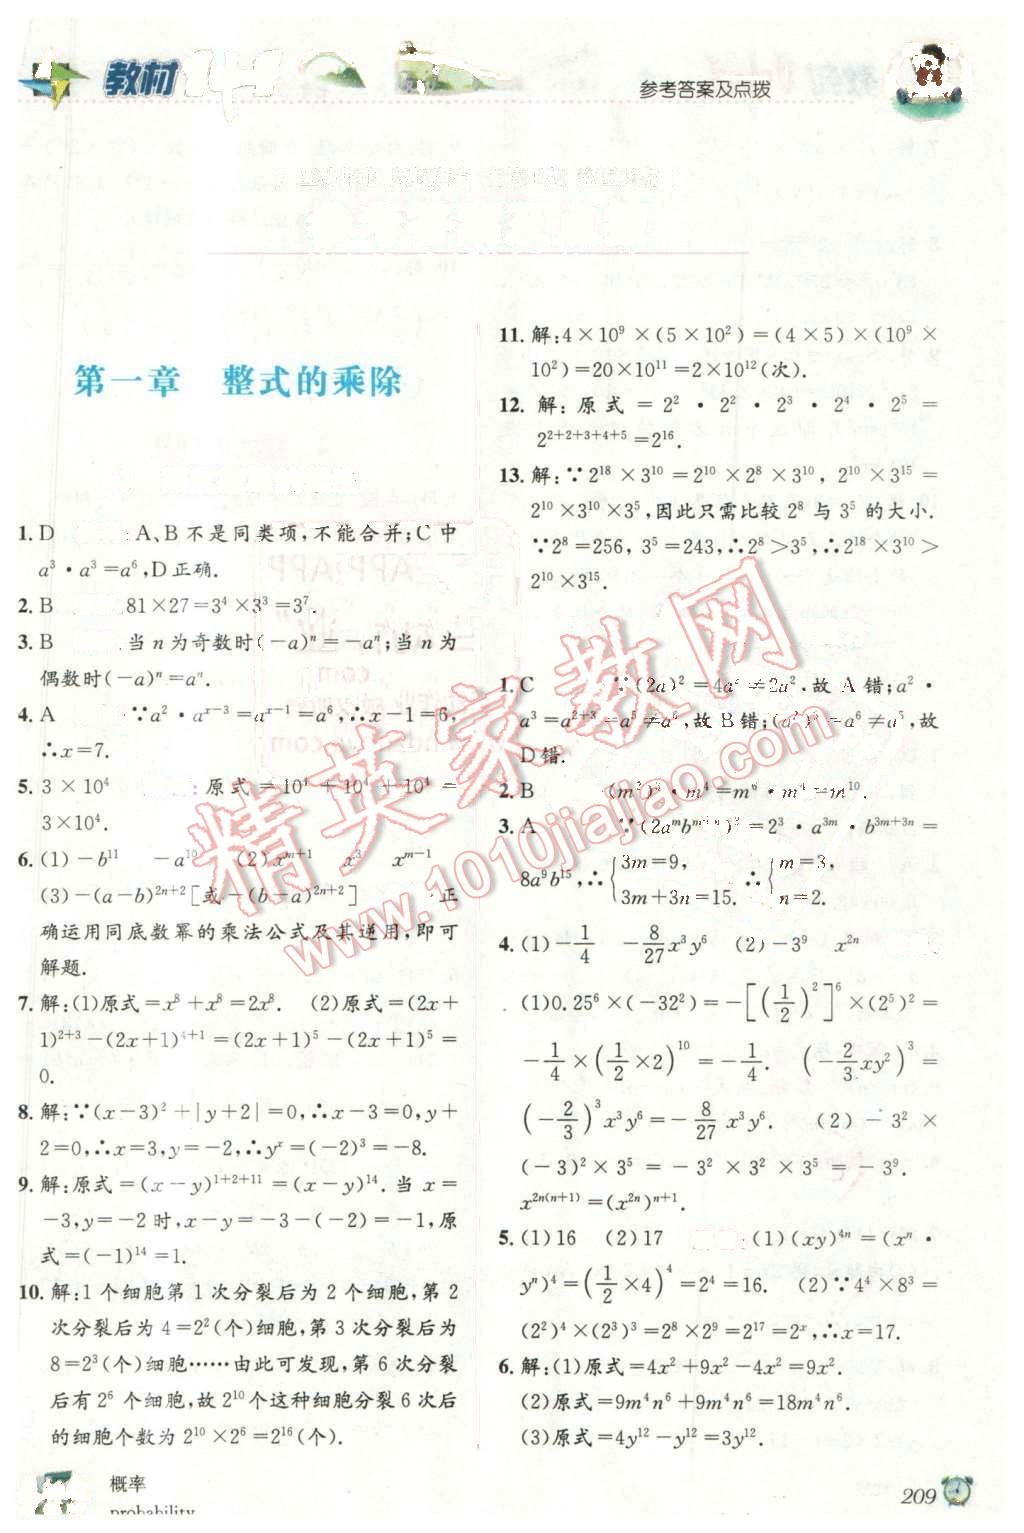 教材
参考答案及点拨
第一章 整式的乘除
1. D A、B 不是同类项,不能合并;C 中
a³·a³=a⁶,D 正确.
2. B 81×27=3⁴×3³=3⁷.
3. B 当 n 为奇数时(-a)ⁿ=-aⁿ;当 n 为
偶数时(-a)ⁿ=aⁿ.
4. A ∵a²·aˣ⁻³=aˣ⁻¹=a⁶,∴x-1=6,
∴x=7.
5. 3×10⁴ 原式=10⁴+10⁴+10⁴=
3×10⁴.
6. (1)-b¹¹ -a¹⁰ (2)xᵐ⁺¹ x³ xᵐ⁻¹
(3)-(a-b)²ⁿ⁺²[或-(b-a)²ⁿ⁺²] 正
确运用同底数幂的乘法公式及其逆用,即可
解题.
7. 解:(1)原式=x⁸+x⁸=2x⁸. (2)原式=(2x+
1)²⁺³-(2x+1)⁴⁺¹=(2x+1)⁵-(2x+1)⁵=
0.
8. 解:∵(x-3)²+|y+2|=0,∴x-3=0,y+
2=0,∴x=3,y=-2,∴yˣ=(-2)³=-8.
9. 解:原式=(x-y)¹⁺²⁺¹¹=(x-y)¹⁴. 当 x=
-3,y=-2 时,x-y=-3-(-2)=-1,原
式=(-1)¹⁴=1.
10. 解:1 个细胞第 1 次分裂后为 2 个细胞,第 2
次分裂后为 4=2²(个)细胞,第 3 次分裂后为
8=2³(个)细胞……由此可发现,第 6 次分裂
后有 2⁶ 个细胞,故 2¹⁰个这种细胞分裂 6 次后
的细胞个数为 2¹⁰×2⁶=2¹⁶(个).
11. 解:4×10⁹×(5×10²)=(4×5)×(10⁹×
10²)=20×10¹¹=2×10¹²(次).
12. 解:原式=2²·2²·2³·2⁴·2⁵=
2²⁺²⁺³⁺⁴⁺⁵=2¹⁶.
13. 解:∵2¹⁸×3¹⁰=2¹⁰×2⁸×3¹⁰, 2¹⁰×3¹⁵=
2¹⁰×3¹⁰×3⁵,因此只需比较 2⁸ 与 3⁵ 的大小.
∵2⁸=256, 3⁵=243,∴2⁸>3⁵,∴2¹⁸×3¹⁰>
2¹⁰×3¹⁵.
1. C ∵(2a)²=4a²≠2a²,故 A 错;a²·
a³=a²⁺³=a⁵≠a⁶,故 B 错;(a²)³=a⁶≠a⁵,故
D 错.
2. B (m³)²·m⁴=m⁶·m⁴=m¹⁰.
3. A ∵(2aᵐbᵐ⁺ⁿ)³=2³·a³ᵐ·b³ᵐ⁺³ⁿ=
8a⁹b¹⁵,∴{3m=9, 3m+3n=15. ∴{m=3, n=2.
4. (1)-1/4 -8/27x³y⁶ (2)-3⁹ x²ⁿ
(1)0.25⁶×(-32²)=-[(1/2)²]⁶×(2⁵)²=
-1/4×(1/2×2)¹⁰=-1/4. (-2/3xy²)³=
(-2/3)³x³y⁶=-8/27x³y⁶. (2)-3²×
(-3)²×3⁵=-3²×3²×3⁵=-3⁹.
x²ⁿ⁽ⁿ⁺¹⁾=(x²ⁿ)ⁿ⁺¹.
5. (1)16 (2)17 (1)(xy)⁴ⁿ=(xⁿ·
yⁿ)⁴=(1/2×4)⁴=2⁴=16. (2)∵4⁴×8³=
(2²)⁴×(2³)³=2⁸×2⁹=2¹⁷=2ˣ,∴x=17.
6. 解:(1)原式=4x²+9x²-4x²=9x².
(2)原式=9m⁴n⁶+9m⁴n⁶=18m⁴n⁶.
(3)原式=4y¹²-y¹²=3y¹².
精英家教网
www.1010jiajiao.com
概率
probability
209